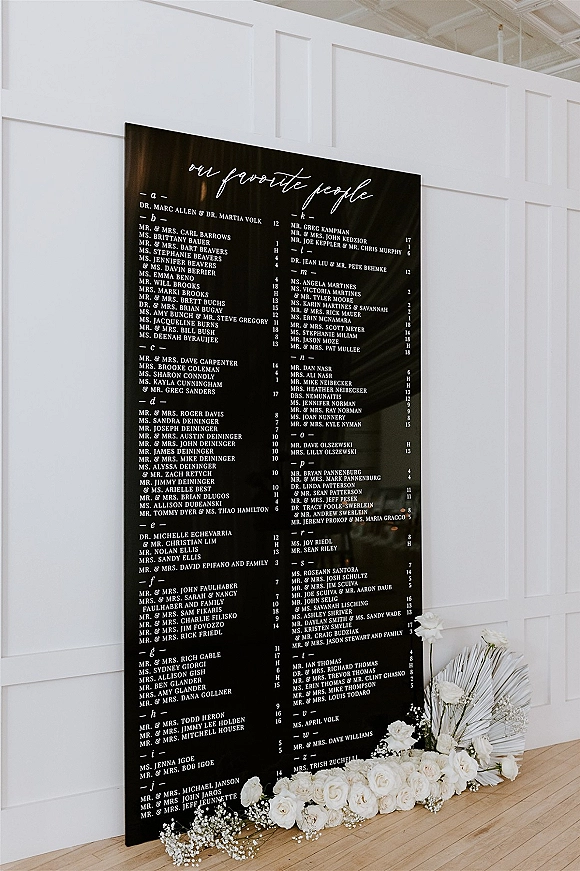 our favorite people
– a –
DR. MARC ALLEN & DR. MARTIA VOLK 12
– b –
MR. & MRS. CARL BARROWS
MS. BRITTANY BAUER 1
MR. & MRS. BART BEAVERS H
MS. STEPHANIE BEAVERS 4
MS. JENNIFER BEAVERS 4
& MS. DAVIN BERRIER
MS. EMMA BENO 4
MR. WILL BROOKS 18
MRS. MARKI BROOKS H
MR. & MRS. BRETT BUCHS 13
DR. & MRS. BRIAN BUGAY 15
MS. AMY BUNCH & MR. STEVE GREGORY 12
MS. JACQUELINE BURNS 11
MR. & MRS. BILL BUSH 18
MS. DEENAH BYRAUIJEE 8
13
– c –
MR. & MRS. DAVE CARPENTER
MRS. BROOKE COLEMAN 14
MS. SHARON CONNOLY 4
MS. KAYLA CUNNINGHAM 1
& MR. GREG SANDERS 17
– d –
MR. & MRS. ROGER DAVIS 8
MS. SANDRA DEININGER 7
MR. JOSEPH DEININGER 7
MR. & MRS. AUSTIN DEININGER 10
MR. & MRS. JOHN DEININGER 10
MR. JAMES DEININGER 10
MR. & MRS. MIKE DEININGER 10
MS. ALYSSA DEININGER
& MR. ZACH RETYCH 10
MR. JIMMY DEININGER
& MS. ARIELLE BEST 10
MR. & MRS. BRIAN DLUGOS 11
MS. ALLISON DUBEANSKI 4
MR. TOMMY DYER & MS. THAO HAMILTON 6
– e –
DR. MICHELLE ECHEVARRIA
& MR. CHRISTIAN LIM 12
MR. NOLAN ELLIS H
MRS. SANDY ELLIS 13
MR. & MRS. DAVID EPIFANO AND FAMILY 3
– f –
MR. & MRS. JOHN FAULHABER 7
MR. & MRS. SARAH & NANCY
FAULHABER AND FAMILY 7
MR. & MRS. SAM FIKARIS 10
MR. & MRS. CHARLIE FILISKO 18
MR. & MRS. JIM FOVOZZO 9
MR. & MRS. RICK FRIEDL 14
– g –
MR. & MRS. RICH GABLE 11
MS. SYDNEY GIORGI 17
MRS. ALLISON GISH H
MR. BEN GLANDER 6
MRS. AMY GLANDER H
MR. & MRS. DANA GOLLNER 15
– h –
MR. & MRS. TODD HERON 9
MR. & MRS. JIMMY LEE HOLDEN 16
MR. & MRS. MITCHELL HOUSER 16
– i –
MS. JENNA IGOE 5
MR. & MRS. BOB IGOE 5
– j –
MR. & MRS. MICHAEL JANSON
MR. & MRS. JOHN JAROS
MR. & MRS. JEFF JEUNNETTE
– k –
MR. GREG KAMPMAN
MR. & MRS. JOHN KEDZIOR 17
MR. JOE KEPPLER & MR. CHRIS MURPHY 1
6
– l –
DR. JEAN LIU & MR. PETE BEHMKE 12
– m –
MS. ANGELA MARTINES
MS. VICTORIA MARTINES 2
& MR. TYLER MOORE
MS. KARIN MARTINES & SAVANNAH 2
MR. & MRS. RICK MAUER 2
MS. ERIN MCNAMARA 1
MR. & MRS. SCOTT MEYER 1
MS. STEPHANIE MILIAM 18
MR. JASON MOZE 14
MR. & MRS. PAT MULLEE H
18
– n –
MR. DAN NASR 6
MRS. ALI NASR H
MR. MIKE NEIBECKER H
MRS. HEATHER NEIBECKER H
DRS. NEMUNAITIS 13
MS. JENNIFER NORMAN 12
MR. & MRS. RAY NORMAN 9
MS. JOAN NUNNERY 9
MR. & MRS. KYLE NYMAN 8
15
– o –
MR. DAVE OLSZEWSKI H
MRS. LILLY OLSZEWSKI 13
– p –
MR. BRYAN PANNENBURG 4
MR. & MRS. MARK PANNENBURG 4
DR. LINDA PATTERSON
& MR. SEAN PATTERSON 11
MR. & MRS. JEFF PESEK 11
DR. TRACY POOLE-SWERLEIN
& MR. ANDREW SWERLEIN 8
MR. JEREMY PROKOP & MS. MARIA GRACCO 5
– r –
MS. JOY RIEDL 8
MR. SEAN RILEY H
– s –
MS. ROSEANN SANTORA 7
MR. & MRS. JOSH SCHULTZ 14
MR. & MRS. JIM SCUIVA 5
MR. JOE SCUIVA & MR. AARON DAUB 5
MR. JOHN SELIG
& MS. SAVANAH LISCHING 16
MS. ASHLEY SHRIVER 13
MR. DAYLAN SMITH & MS. SANDY WADE
MS. KRISTEN SMYLIE
& MR. CRAIG BUDZIAK
MR. & MRS. JASON STEWART AND FAMILY 3
– t –
MR. IAN THOMAS 4
MR. & DR. RICHARD THOMAS 8
MR. & MRS. TREVOR THOMAS H
MS. ERIN THOMAS & MR. CLINT CHASKO
MR. & MRS. MIKE THOMPSON 8
MR. & MRS. LOUIS TODARO 5
– v –
MS. APRIL VOLK
– w –
MR. & MRS. DAVE WILLIAMS
– z –
MRS. TRISH ZUCHELLI